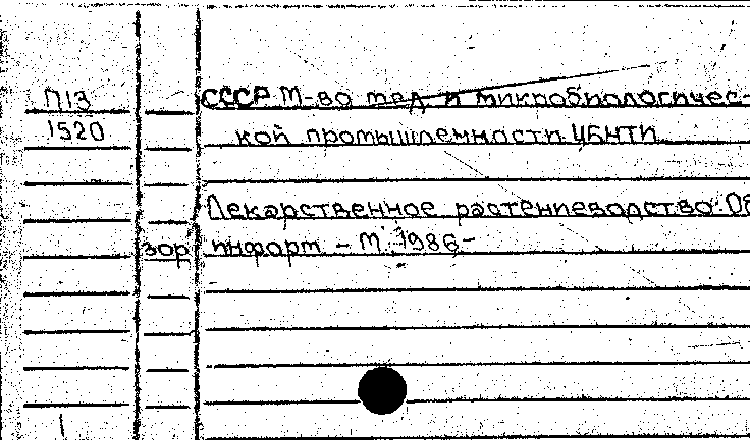 П13
1520
СССР М-во мед. и микробиологичес-
кой промышленности. ЦБНТИ
Лекарственное растениеводство: Об
зор информ - М. 1986-